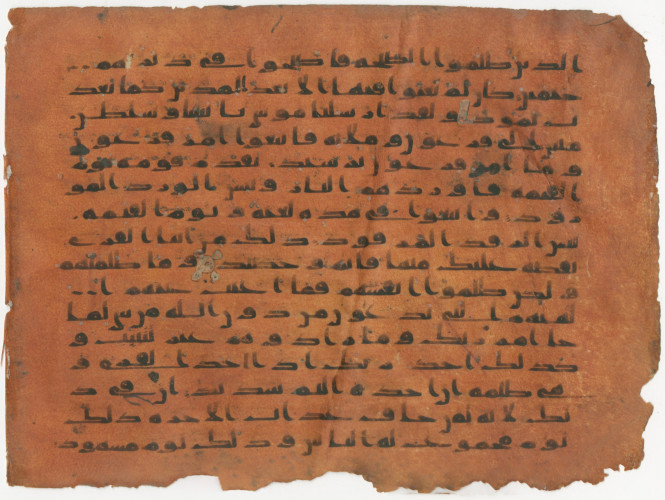 الذين ظلموا الصيحه فاصبحوا في ديرهم
جثمين كان لم يغنوا فيها الا بعدا لمدين كما بعد
ت ثمود ولقد ارسلنا موسى بايتنا وسلطن
مبين الى فرعون وملايه فاتبعوا امر فرعون
وما امر فرعون برشيد يقدم قومه يوم
القيمه فاوردهم النار وبيس الورد المو
رود واتبعوا في هذه لعنه ويوم القيمه
بيس الرفد المرفود ذلك من انبا القرى
نقصه عليك منها قايم وحصيد وما ظلمنهم
ولكن ظلموا انفسهم فما اغنت عنهم ا
لهتهم التي يدعون من دون الله من شي لما
جا امر ربك وما زادوهم غير تتبيب و
كذلك اخذ ربك اذا اخذ القرى و
هي ظلمه ان اخذه اليم شديد ان في ذ
لك لايه لمن خاف عذاب الاخره ذلك
يوم مجموع له الناس وذلك يوم مشهود